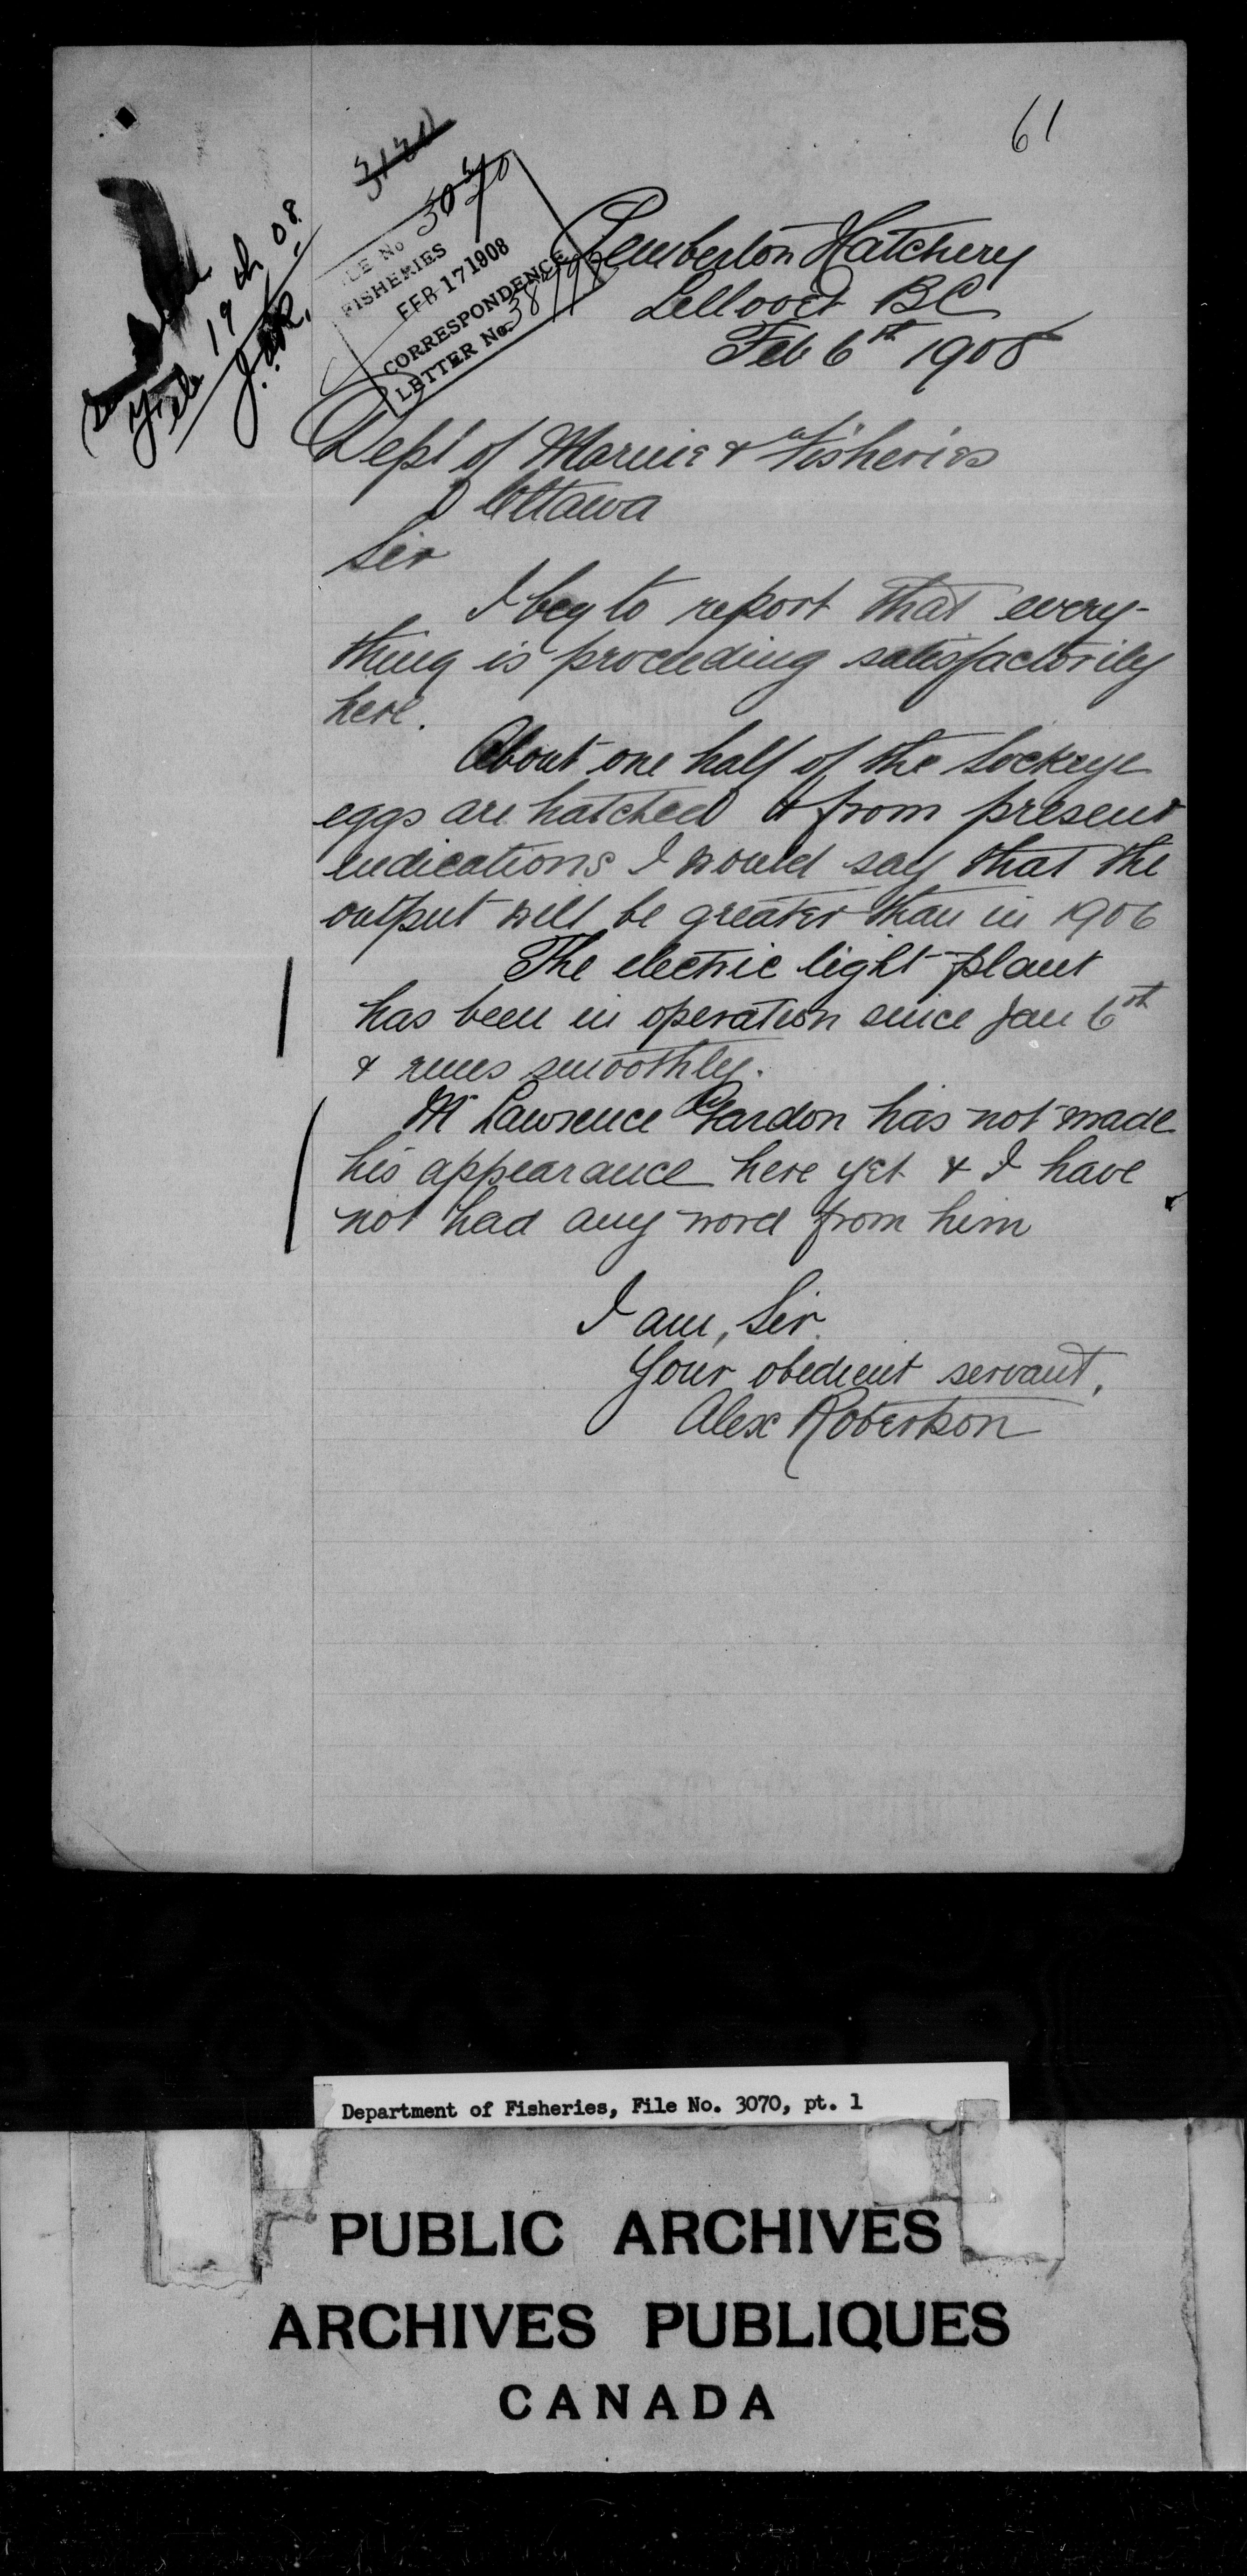 61
3120
FILE No 3070
FISHERIES
FEB 17 1908
CORRESPONDENCE
LETTER No.
Feb 19th 08.
Pemberton Hatchery
Lillooet BC
Feb 6th 1908
Dept of Marine & Fisheries
Ottawa
Sir
I beg to report that every-
thing is proceeding satisfactorily
here.
About one half of the Sockeye
eggs are hatched & from present
indications I would say that the
output will be greater than in 1906
The electric light plant
has been in operation since Jan 6th
& runs smoothly.
Mr Lawrence has not made
his appearance here yet & I have
not had any word from him
I am, Sir.
Your obedient servant,
Alex Robertson
Department of Fisheries, File No. 3070, pt. 1
PUBLIC ARCHIVES
ARCHIVES PUBLIQUES
CANADA